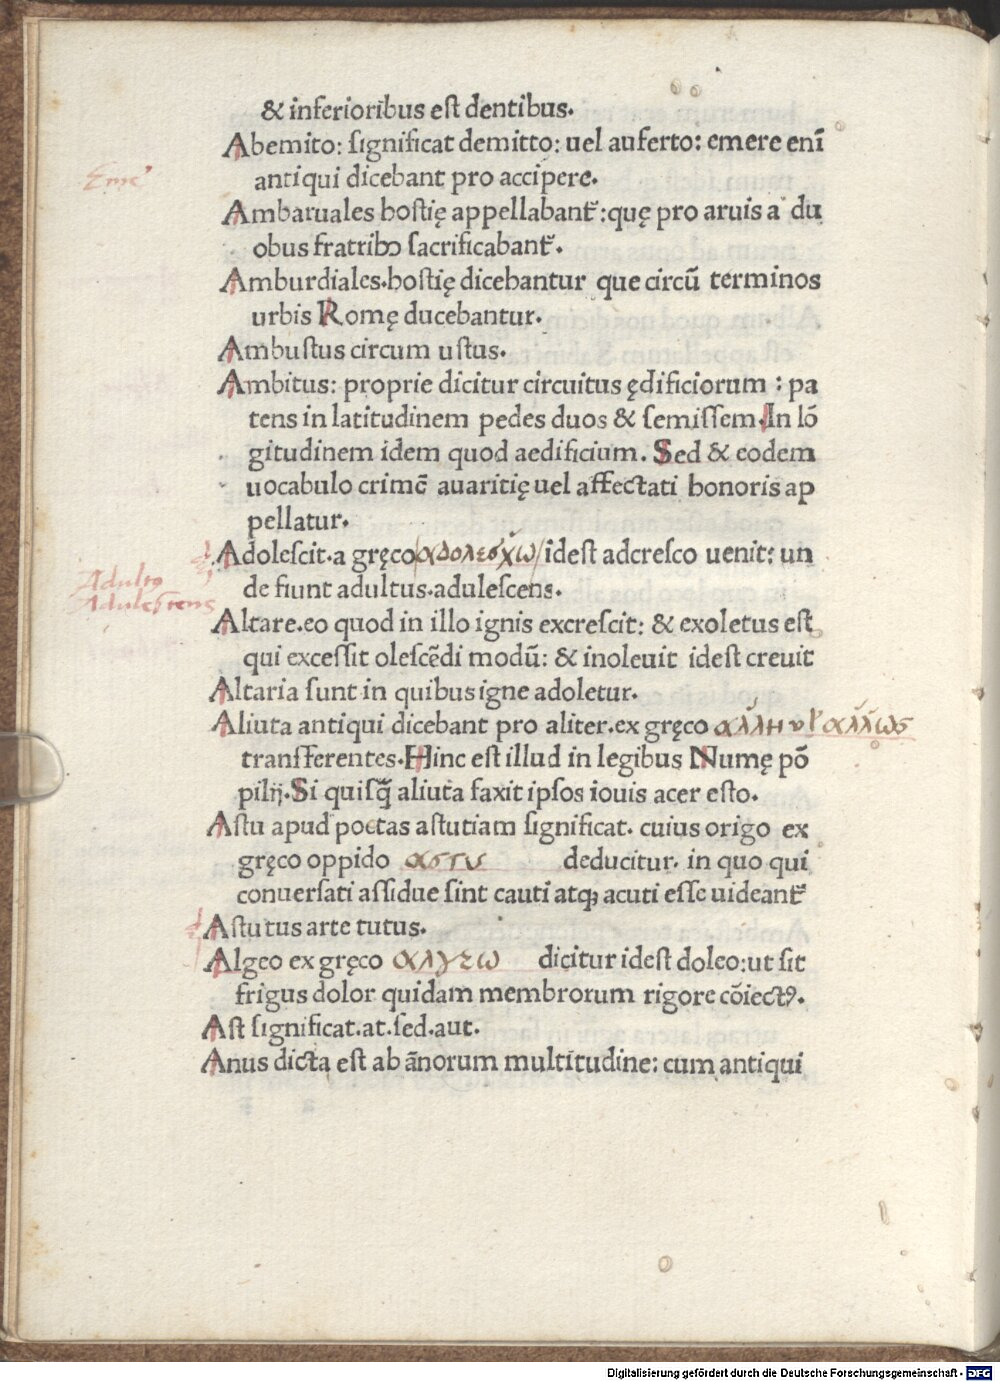 & inferioribus est dentibus.
Abemito: significat demitto: uel auferto: emere enī
Eme
antiqui dicebant pro accipere.
Ambaruales hostię appellabant᷑: quę pro aruis a du
obus fratribꝫ sacrificabant᷑.
Amburdiales. hostię dicebantur que circū terminos
urbis Romę ducebantur.
Ambustus circum ustus.
Ambitus: proprie dicitur circuitus ędificiorum : pa
tens in latitudinem pedes duos & semissem. In lō
gitudinem idem quod aedificium. Sed & eodem
uocabulo crimē auaritię uel affectati honoris ap
pellatur.
Adolescit. a gręco αδολεσχω idest adcresco uenit: un
Adultus
de fiunt adultus. adulescens.
Adulescens
Altare. eo quod in illo ignis excrescit: & exoletus est
qui excessit olescēdi modū: & inoleuit idest creuit
Altaria sunt in quibus igne adoletur.
Aliuta antiqui dicebant pro aliter. ex gręco αλλη υl᾽ αλλως
transferentes. Hinc est illud in legibus Numę pō
pilij. Si quisq̄ aliuta faxit ipsos iouis acer esto.
Astu apud poetas astutiam significat. cuius origo ex
gręco oppido αστυ deducitur. in quo qui
conuersati assidue sint cauti atqꝫ acuti esse uideant᷑
Astutus arte tutus.
Algeo ex gręco αλγεω dicitur idest doleo: ut sit
frigus dolor quidam membrorum rigore cōiectꝰ.
Ast significat. at. sed. aut.
Anus dicta est ab ānorum multitudine: cum antiqui
Digitalisierung gefördert durch die Deutsche Forschungsgemeinschaft - DFG